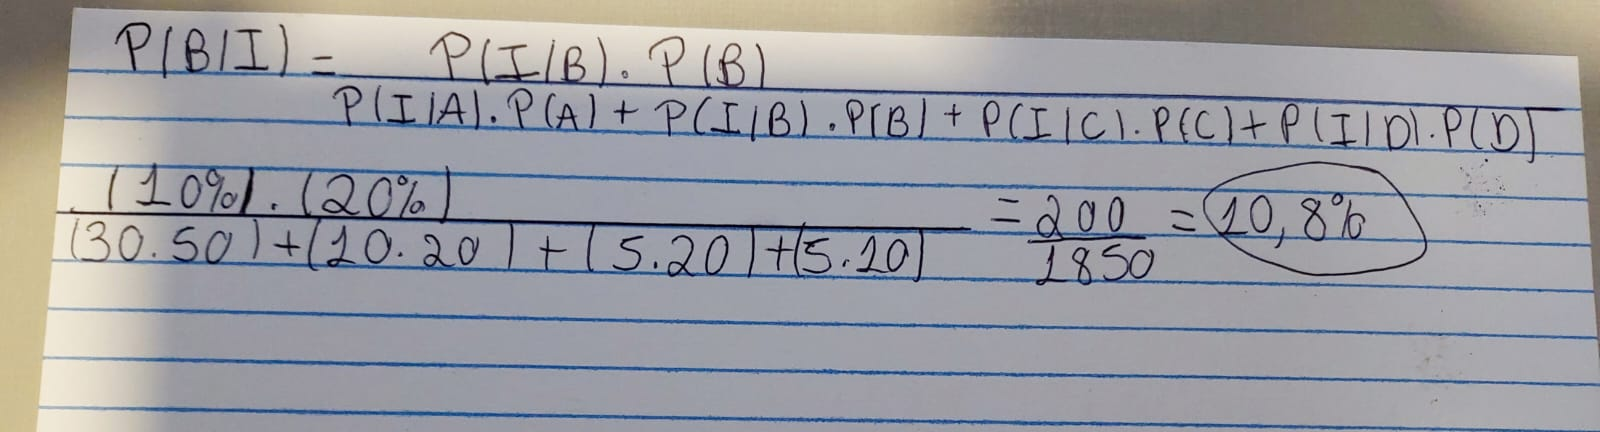 P(B/I) = P(I/B). P(B)
P(I/A). P(A) + P(I/B). P(B) + P(I/C). P(C) + P(I/D). P(D)
(10%). (20%)
(30.50) + (10.20) + (5.20) + (5.10) = 200 = 10,8%
1850